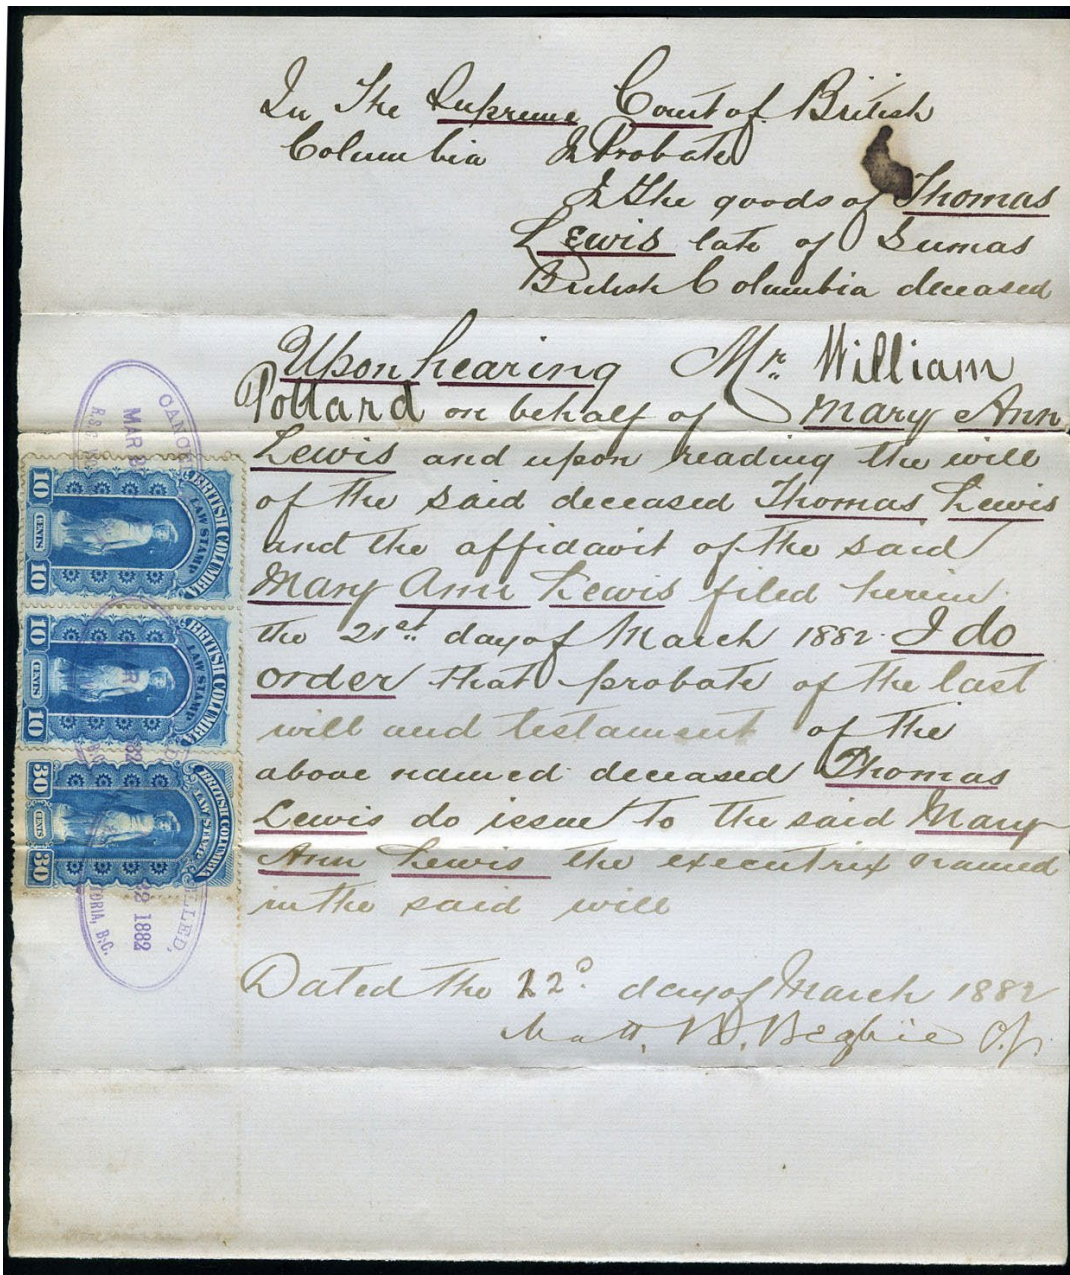 In The Supreme Court of British
Columbia In Probate
In The goods of Thomas
Lewis late of Sumas
British Columbia deceased
Upon hearing Mr. William
Pollard on behalf of Mary Ann
Lewis and upon reading the will
of the said deceased Thomas Lewis
and the affidavit of the said
Mary Ann Lewis filed herein
the 21st day of March 1882. I do
order that probate of the last
will and testament of the
above named deceased Thomas
Lewis do issue to the said Mary
Ann Lewis the executrix named
in the said will
Dated the 22d day of March 1882
Matt. B. Begbie C.J.
BRITISH COLUMBIA
LAW STAMP
10 CENTS 10
BRITISH COLUMBIA
LAW STAMP
10 CENTS 10
BRITISH COLUMBIA
LAW STAMP
30 CENTS 30
MAR
1882